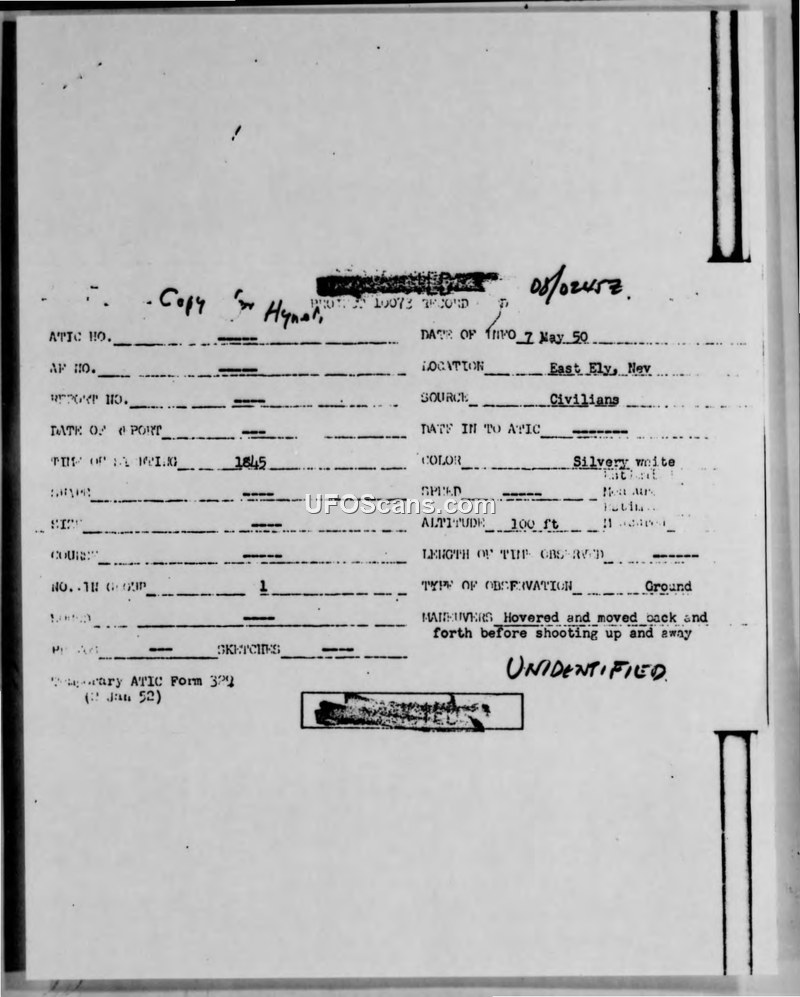 Copy for Hynek
10073 RECORD
ATIC NO. -----
DATE OF INFO 7 May 50
AF NO. ----
LOCATION East Ely, Nev
REPORT NO. ----
SOURCE Civilians
DATE OF REPORT ---
DATE IN TO ATIC -------
TIME OF SIGHTING 1845
COLOR Silvery white
SHAPE ----
SPEED -----
UFOScans.com
SIZE ----
ALTITUDE 100 ft
COURSE -----
LENGTH OF TIME OBSERVED ------
NO. IN GROUP 1
TYPE OF OBSERVATION Ground
----
MANEUVERS Hovered and moved back and
forth before shooting up and away
--- SKETCHES ----
UNIDENTIFIED
Temporary ATIC Form 329
(2 Jan 52)